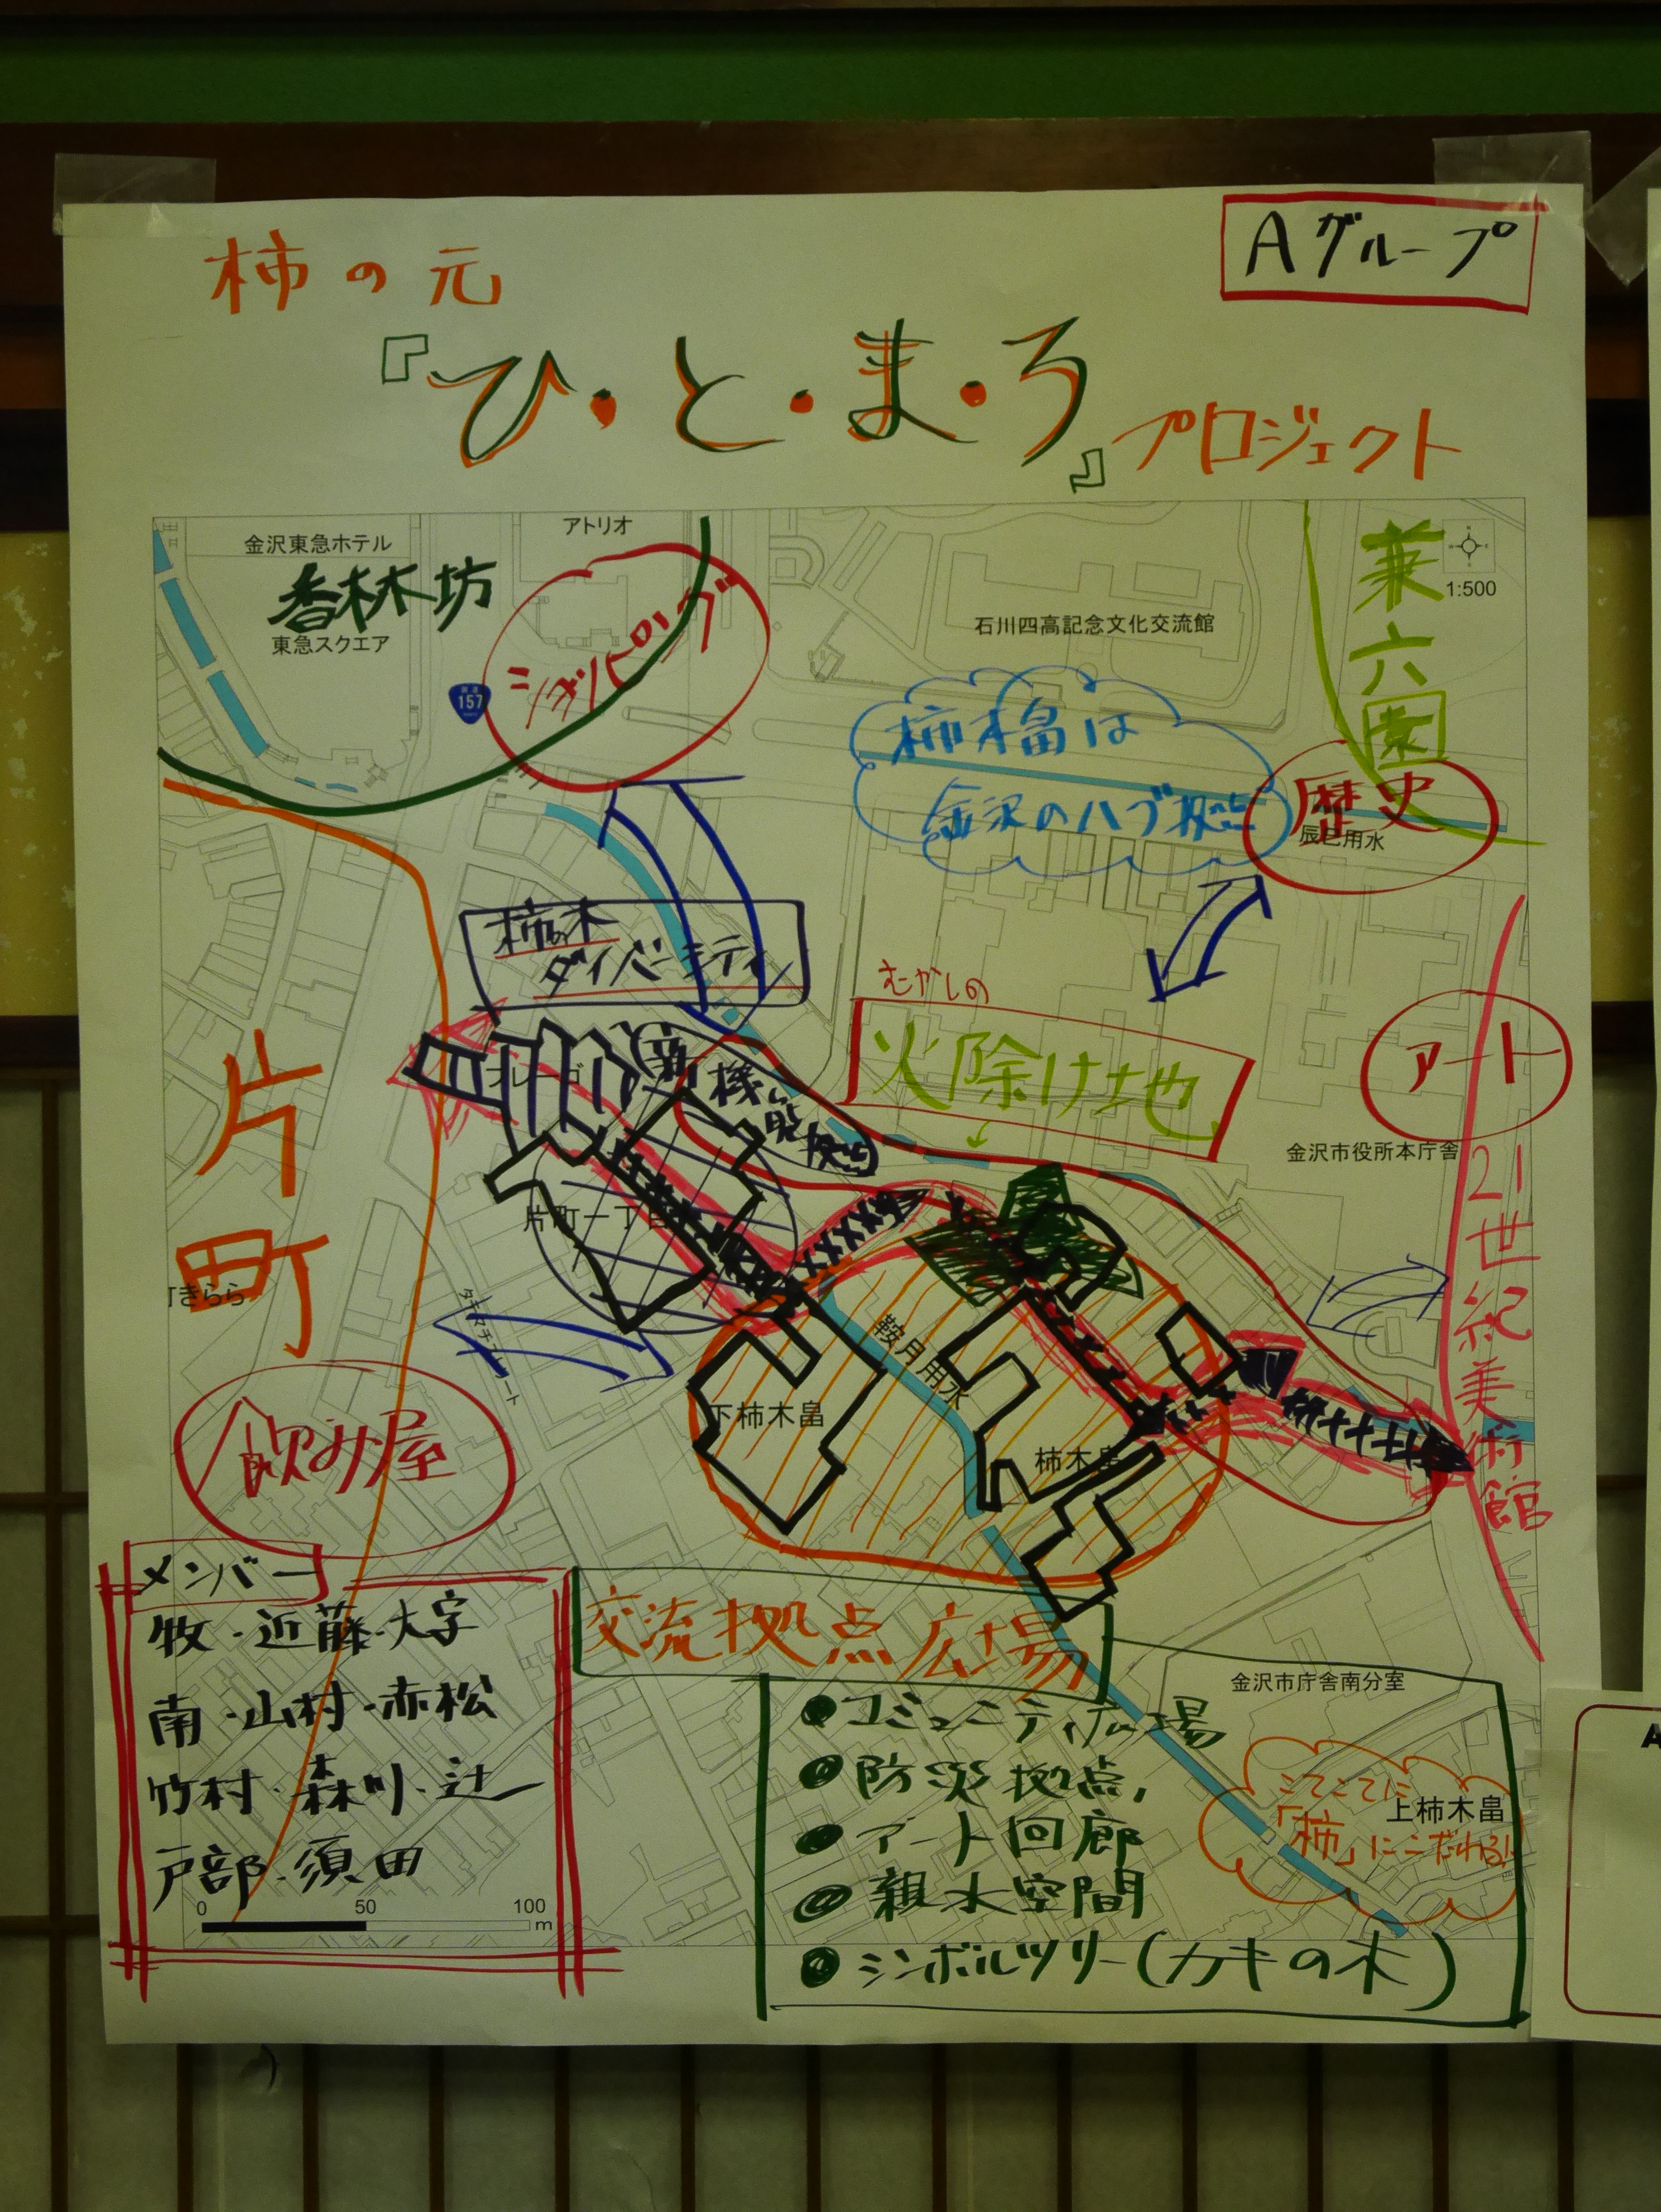 Aグループ
柿の元
『ひ・と・ま・ろ』プロジェクト
金沢東急ホテル
アトリオ
香林坊
東急スクエア
157
ショッピング
石川四高記念文化交流館
兼六園
1:500
柿木畠は
金沢のハブ拠点
歴史
辰巳用水
柿の木
ダイバーシティ
むかしの
火除け地
アート
金沢市役所本庁舎
21世紀美術館
片町
片町一丁目
きらら
タテマチストリート
鞍月用水
下柿木畠
柿木畠
飲み屋
メンバー
牧・近藤・大字
南・山村・赤松
竹村・森川・辻
戸部・須田
0 50 100
m
交流拠点広場
●コミュニティ広場
●防災拠点
●アート回廊
●親水空間
●シンボルツリー(カキの木)
金沢市庁舎南分室
上柿木畠
こてこてに
「柿」にこだわる!